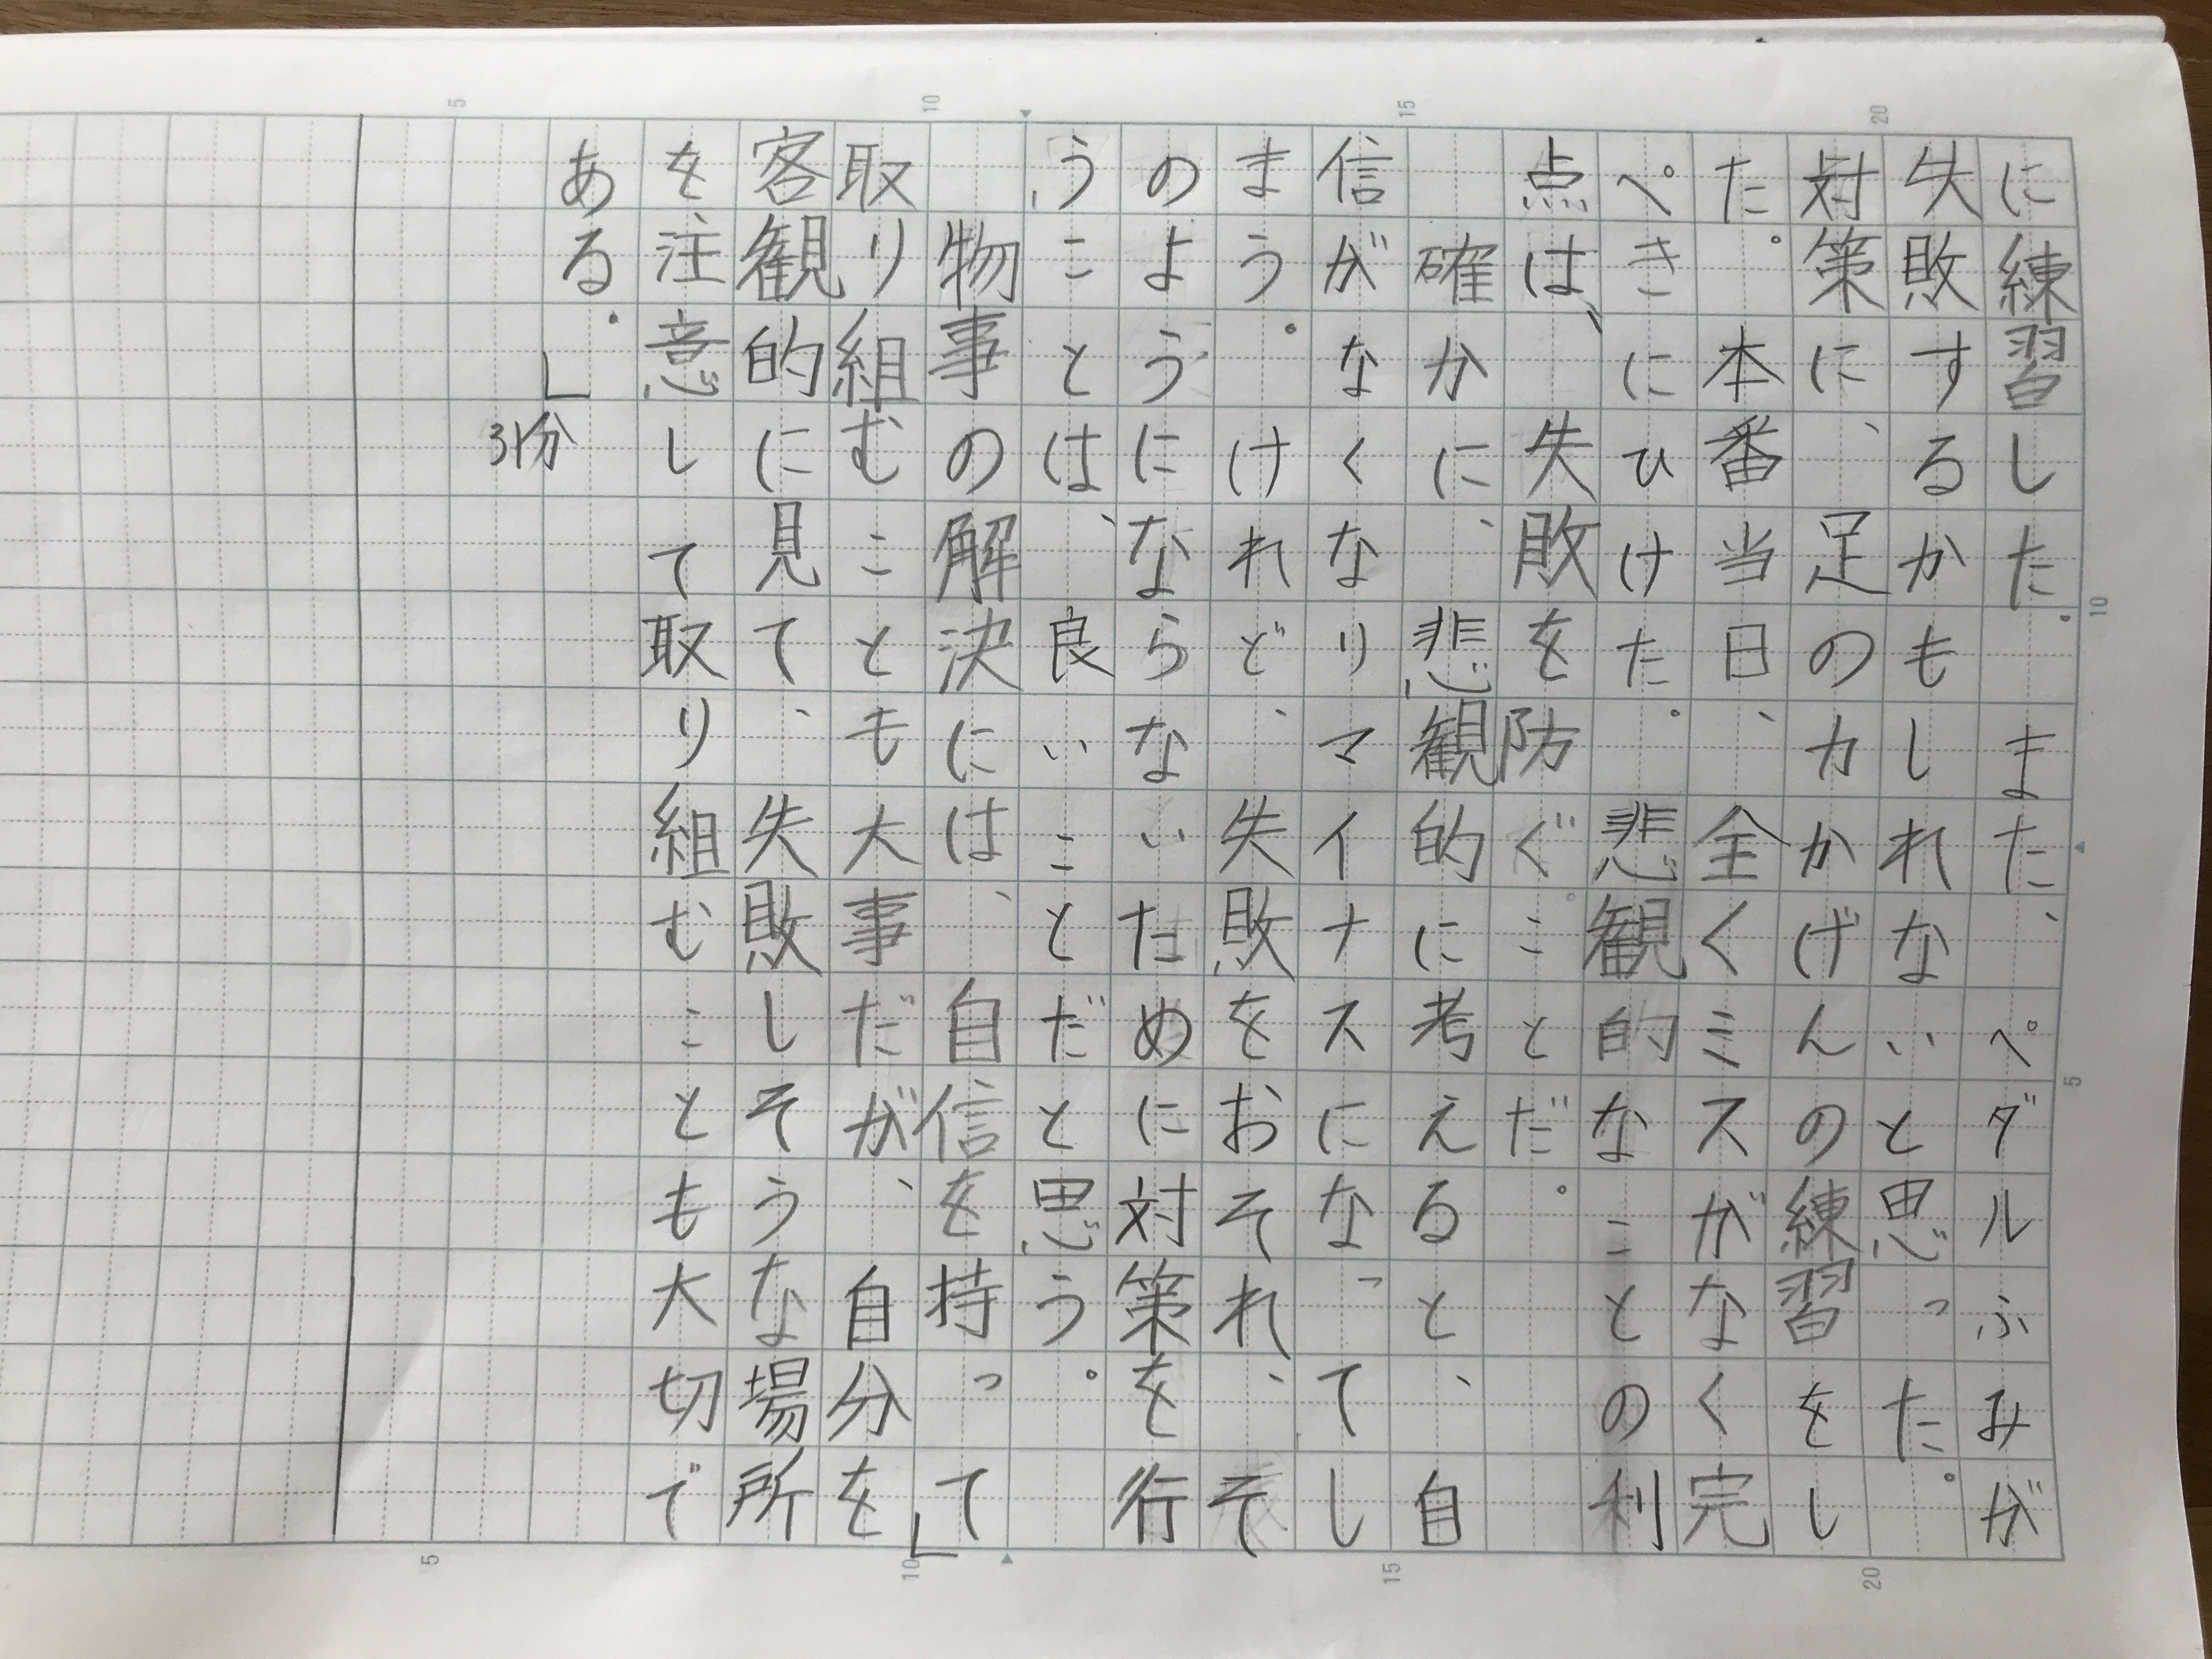 に練習した。また、ペダルふみが
失敗するかもしれないと思った。
対策に、足の力かげんの練習をし
た。本番当日、全くミスがなく完
ぺきにひけた。悲観的なことの利
点は、失敗を防ぐことだ。
確かに、悲観的に考えると、自
信がなくなりマイナスになってし
まう。けれど、失敗をおそれ、そ
のようにならないために対策を行
うことは、良いことだと思う。
物事の解決には、自信を持って」
取り組むことも大事だが、自分を
客観的に見て、失敗しそうな場所
を注意して取り組むことも大切で
ある。」
31分
5
10
15
20
10
5
5
10
15
20